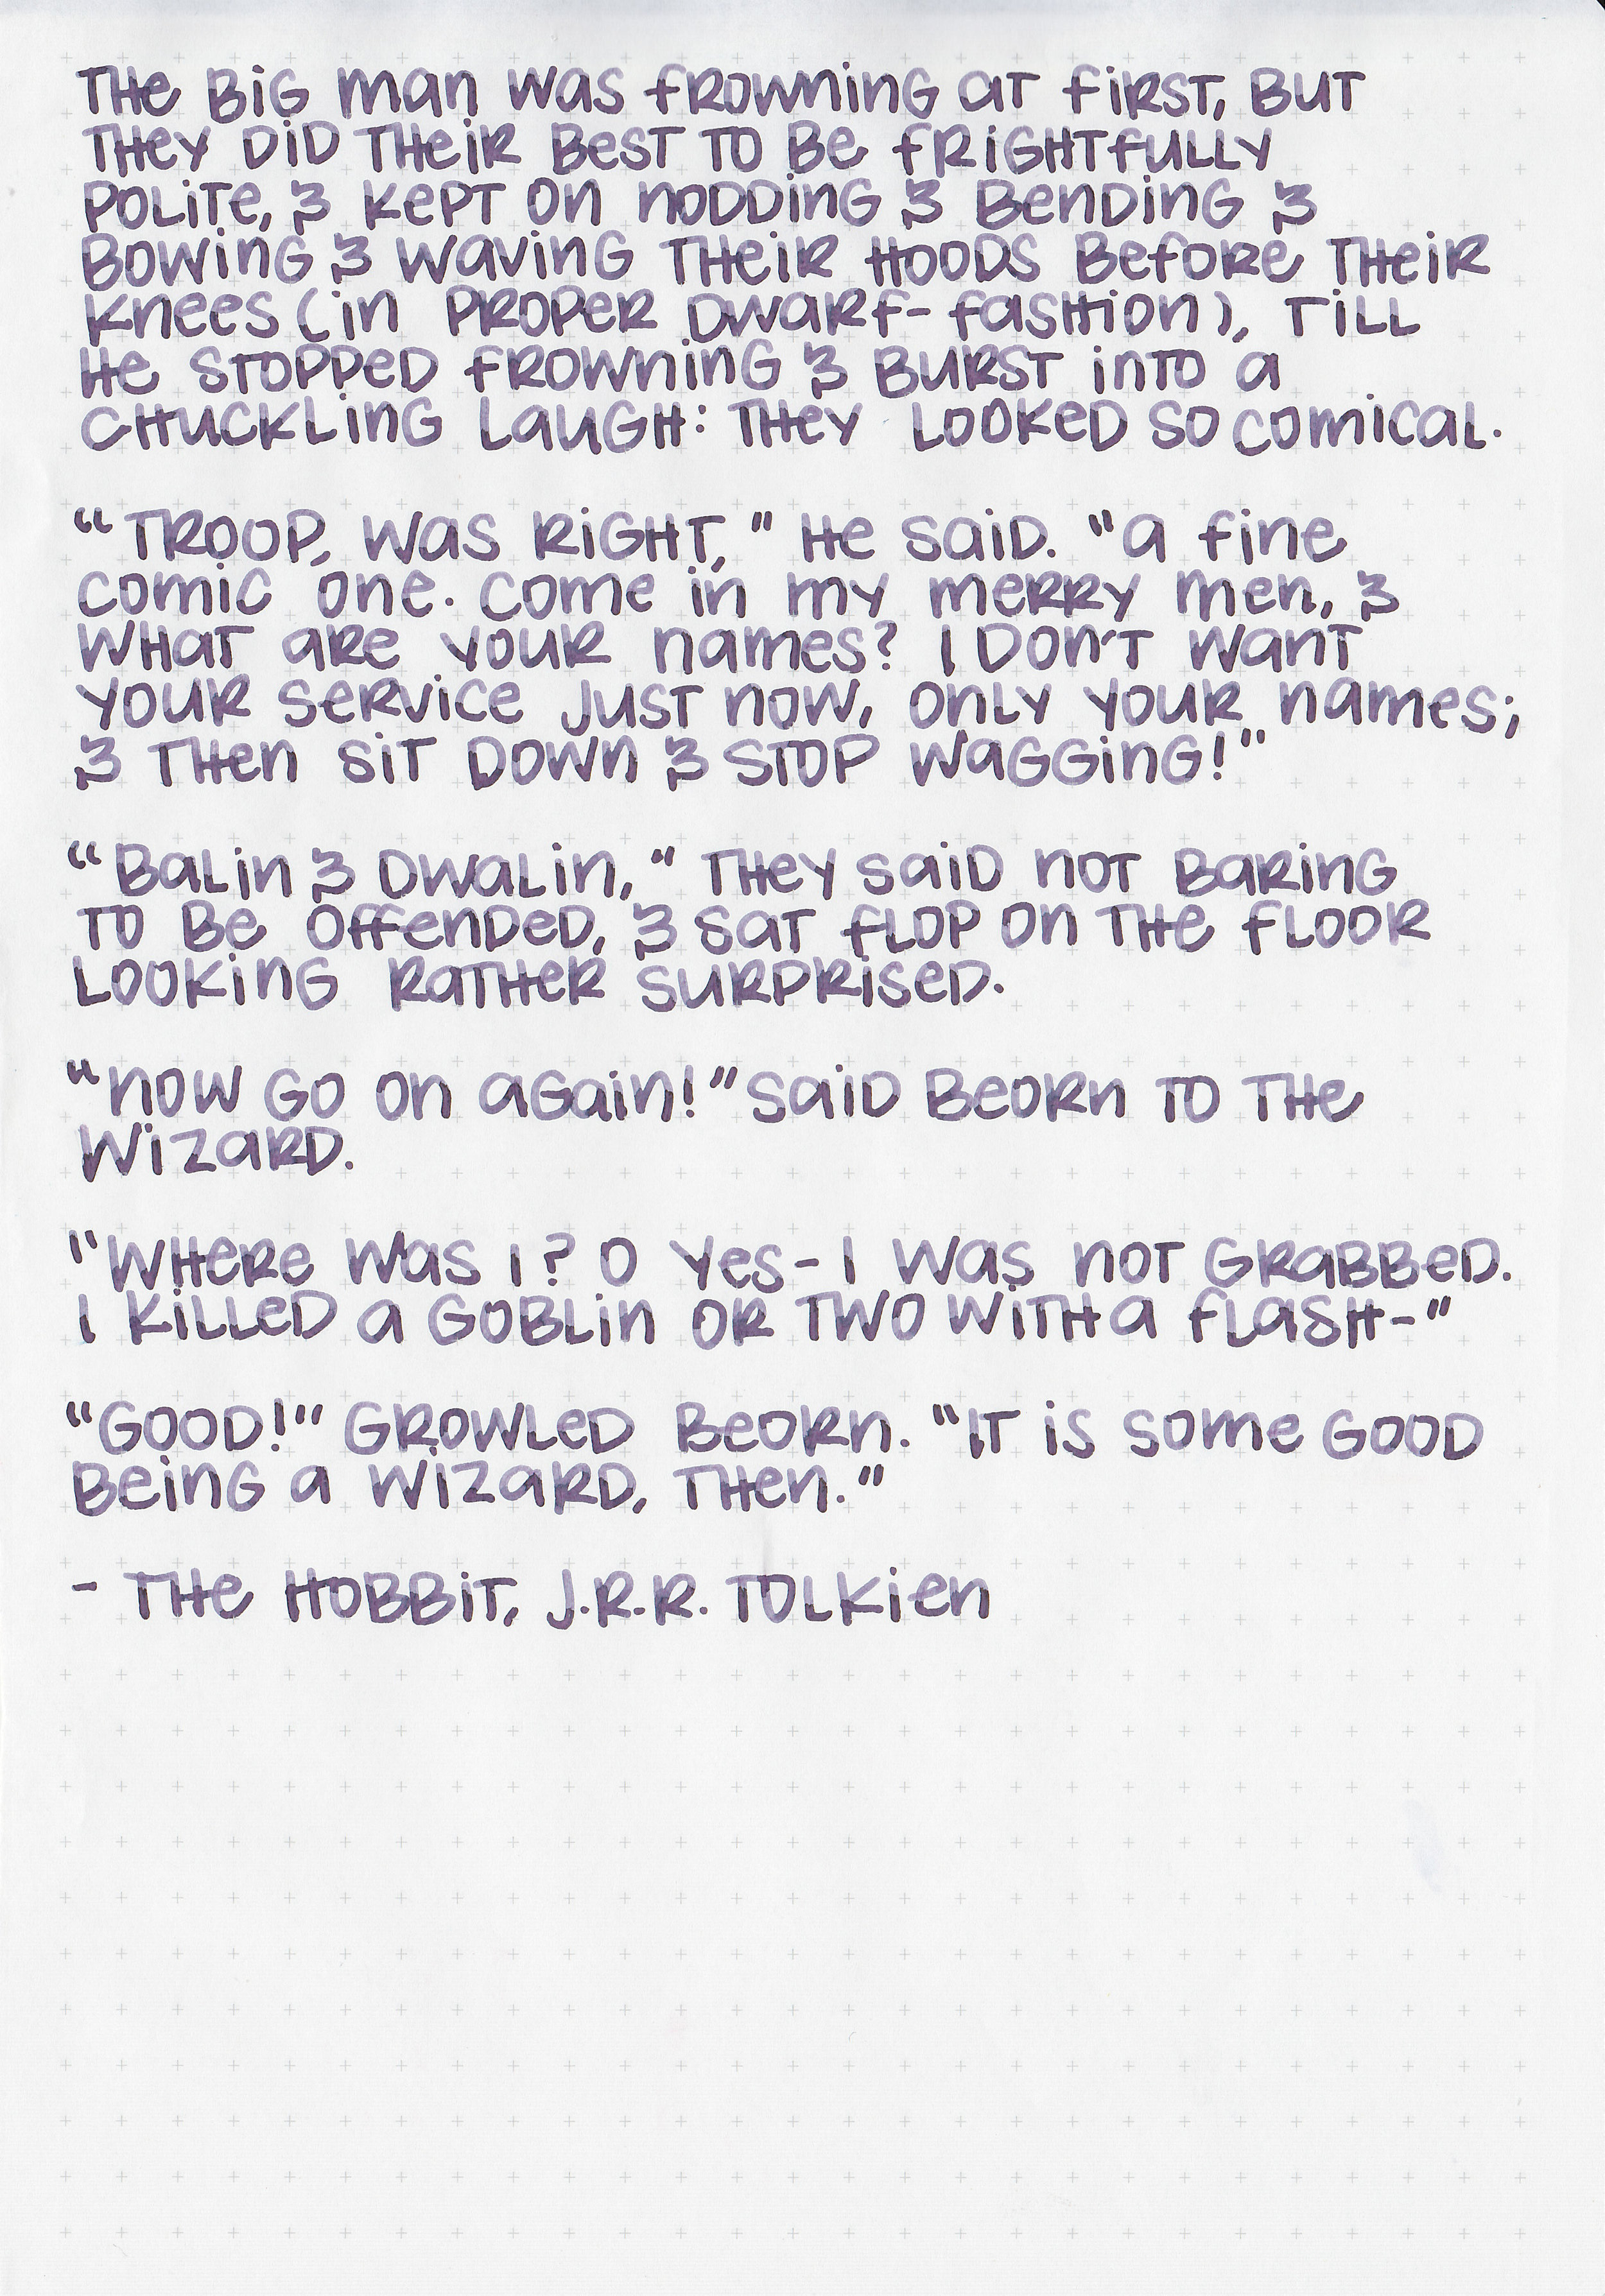 The Big man was frowning at first, but
they did their best to be frightfully
polite, & kept on nodding & bending &
bowing & waving their hoods before their
knees (in proper dwarf-fashion), till
he stopped frowning & burst into a
chuckling laugh: they looked so comical.
"Troop, was right," he said. "a fine
comic one. come in my merry men, &
what are your names? I don't want
your service just now, only your names;
& then sit down & stop wagging!"
"Balin & Dwalin," they said not baring
to be offended, & sat flop on the floor
looking rather surprised.
"now go on again!" said Beorn to the
wizard.
"Where was I? O yes- I was not grabbed.
I killed a goblin or two with a flash-"
"Good!" growled Beorn. "It is some good
being a wizard, then."
- The Hobbit, J.R.R. Tolkien